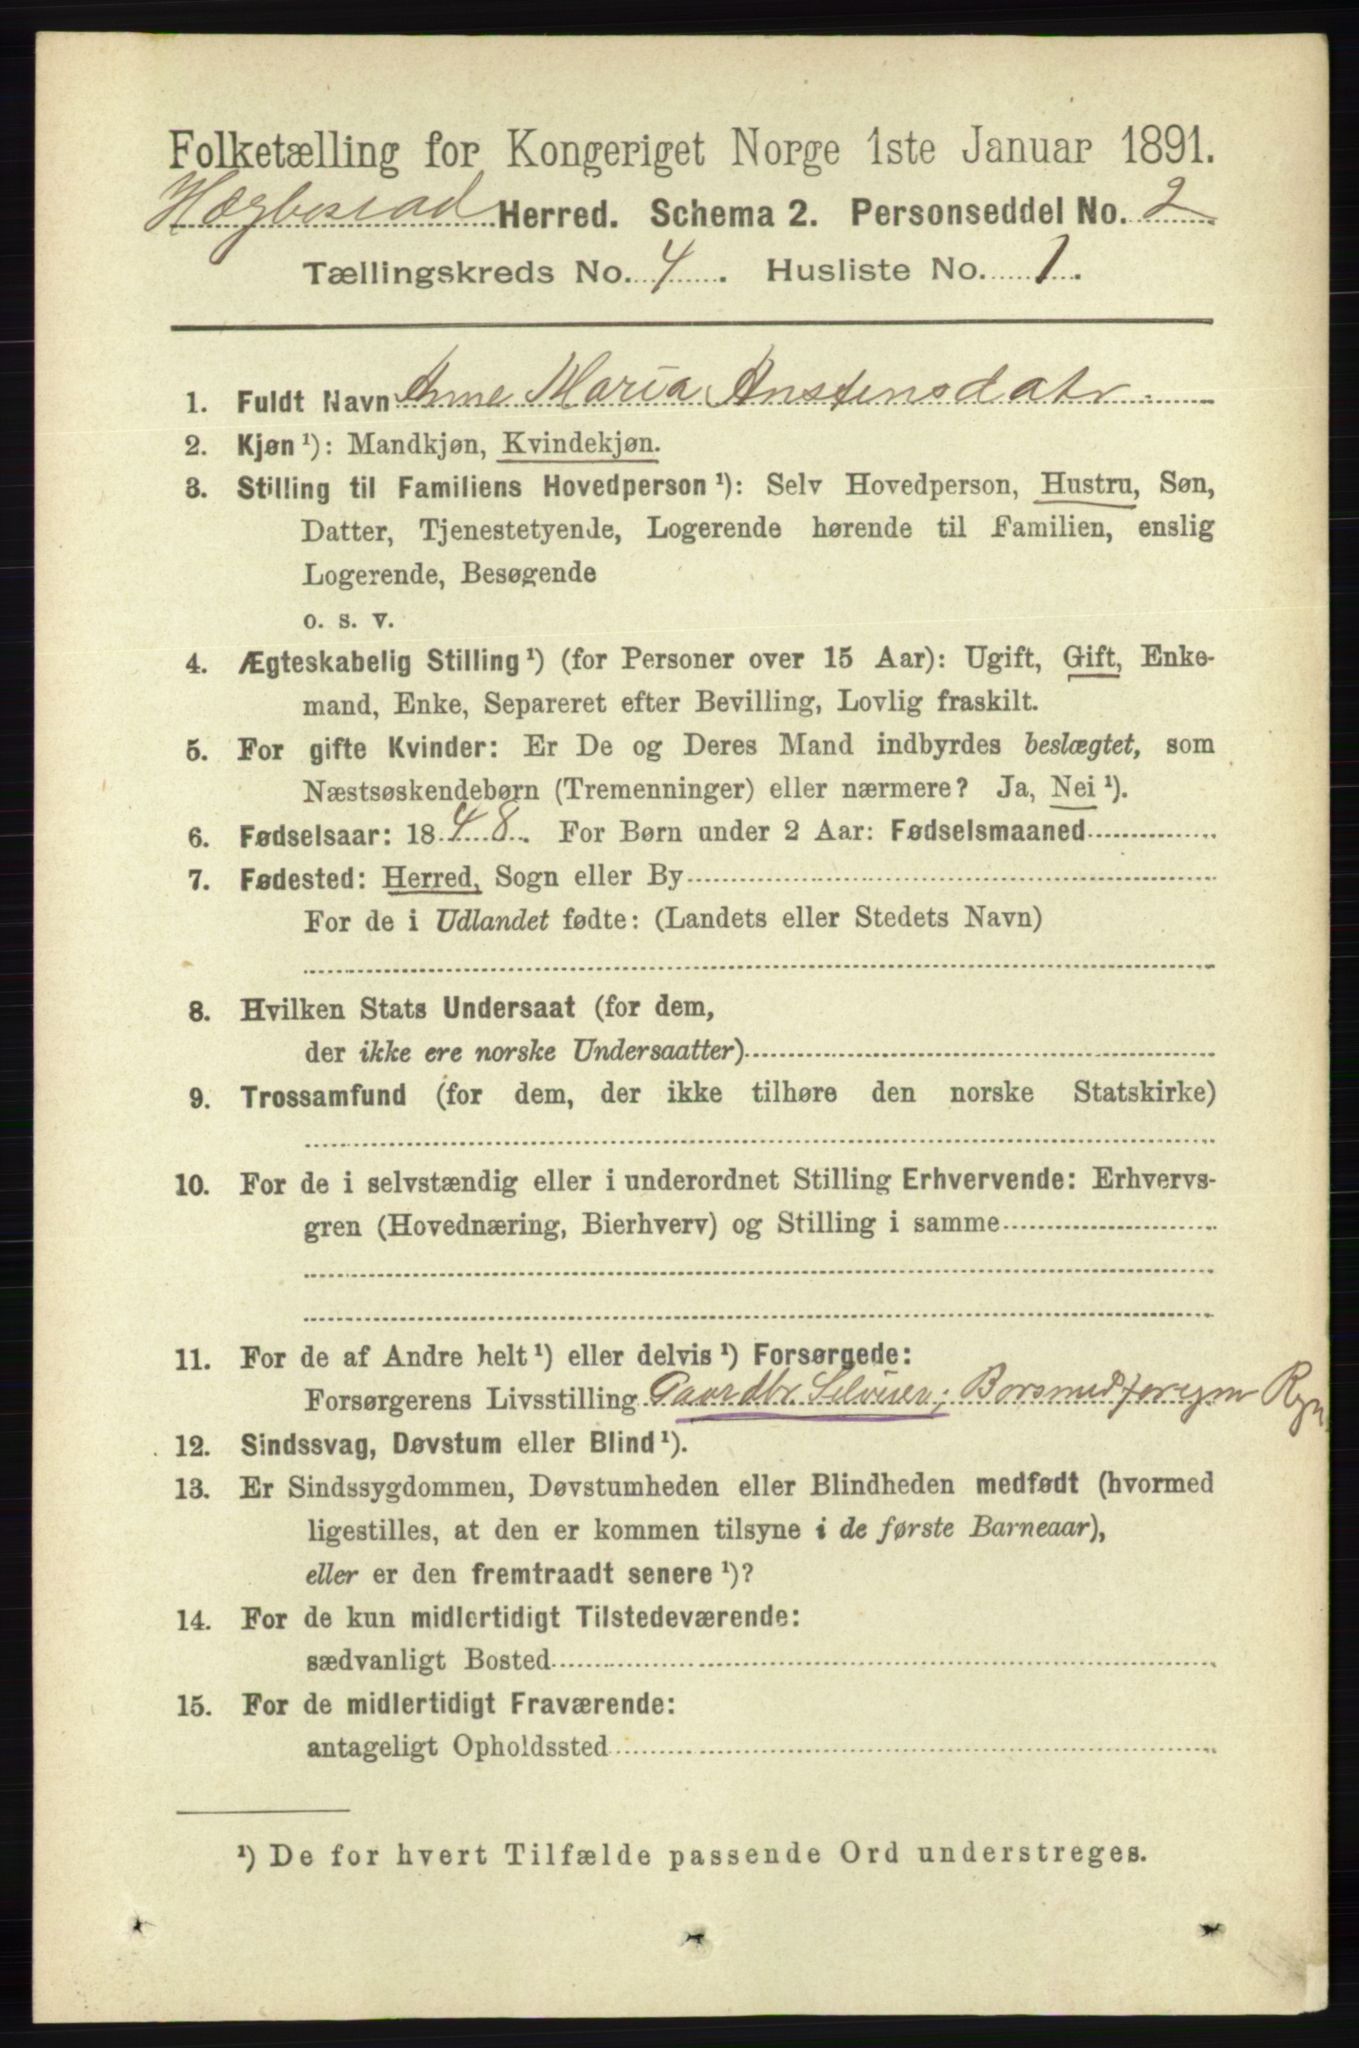 Folketælling for Kongeriget Norge 1ste Januar 1891.
Hægbostad Herred. Schema 2. Personseddel No. 2
Tællingskreds No. 4. Husliste No. 1.
1. Fuldt Navn Anne Maria Anstensdatr.
2. Kjøn ¹): Mandkjøn, Kvindekjøn.
3. Stilling til Familiens Hovedperson ¹): Selv Hovedperson, Hustru, Søn,
Datter, Tjenestetyende, Logerende hørende til Familien, enslig
Logerende, Besøgende
o. s. v.
4. Ægteskabelig Stilling ¹) (for Personer over 15 Aar): Ugift, Gift, Enke-
mand, Enke, Separeret efter Bevilling, Lovlig fraskilt.
5. For gifte Kvinder: Er De og Deres Mand indbyrdes beslægtet, som
Næstsøskendebørn (Tremenninger) eller nærmere? Ja, Nei ¹).
6. Fødselsaar: 1848. For Børn under 2 Aar: Fødselsmaaned
7. Fødested: Herred, Sogn eller By
For de i Udlandet fødte: (Landets eller Stedets Navn)
8. Hvilken Stats Undersaat (for dem,
der ikke ere norske Undersaatter)
9. Trossamfund (for dem, der ikke tilhøre den norske Statskirke)
10. For de i selvstændig eller i underordnet Stilling Erhvervende: Erhvervs-
gren (Hovednæring, Bierhverv) og Stilling i samme
11. For de af Andre helt ¹) eller delvis ¹) Forsørgede:
Forsørgerens Livsstilling Gaardbr. Selveier;
12. Sindssvag, Døvstum eller Blind ¹).
13. Er Sindssygdommen, Døvstumheden eller Blindheden medfødt (hvormed
ligestilles, at den er kommen tilsyne i de første Barneaar),
eller er den fremtraadt senere ¹)?
14. For de kun midlertidigt Tilstedeværende:
sædvanligt Bosted
15. For de midlertidigt Fraværende:
antageligt Opholdssted
¹) De for hvert Tilfælde passende Ord understreges.